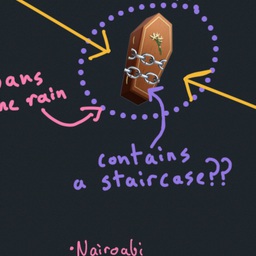 rain
contains
a staircase??
•Nairoabi